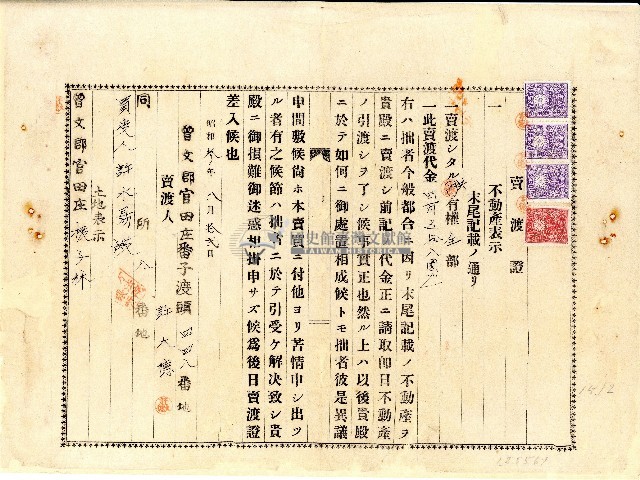 賣渡證
一 不動產表示
末尾記載ノ通リ
一賣渡シタル所有權全部
一此賣渡代金
右ハ拙者今般都合ニ因リ末尾記載ノ不動產ヲ
貴殿ニ賣渡シ前記ノ代金正ニ請取卽日不動產
ノ引渡シヲ了シ候事實正也然ル上ハ以後貴殿
ニ於テ如何ニ御處置相成候トモ拙者彼是異議
申間敷候尙ホ本賣買ニ付他ヨリ苦情申シ出ツ
ル者有之候節ハ拙者ニ於テ引受ケ解決致シ貴
殿ニ御損難御迷惑相掛申サズ候爲後日賣渡證
差入候也
昭和 年八月拾弍日
曾文郡官田庄番子渡頭四四八番地
賣渡人 許大
同所 番地
買受人 許水
土地表示
曾文郡官田庄
臺史館臺灣文獻館
TAIWAN HISTORICA